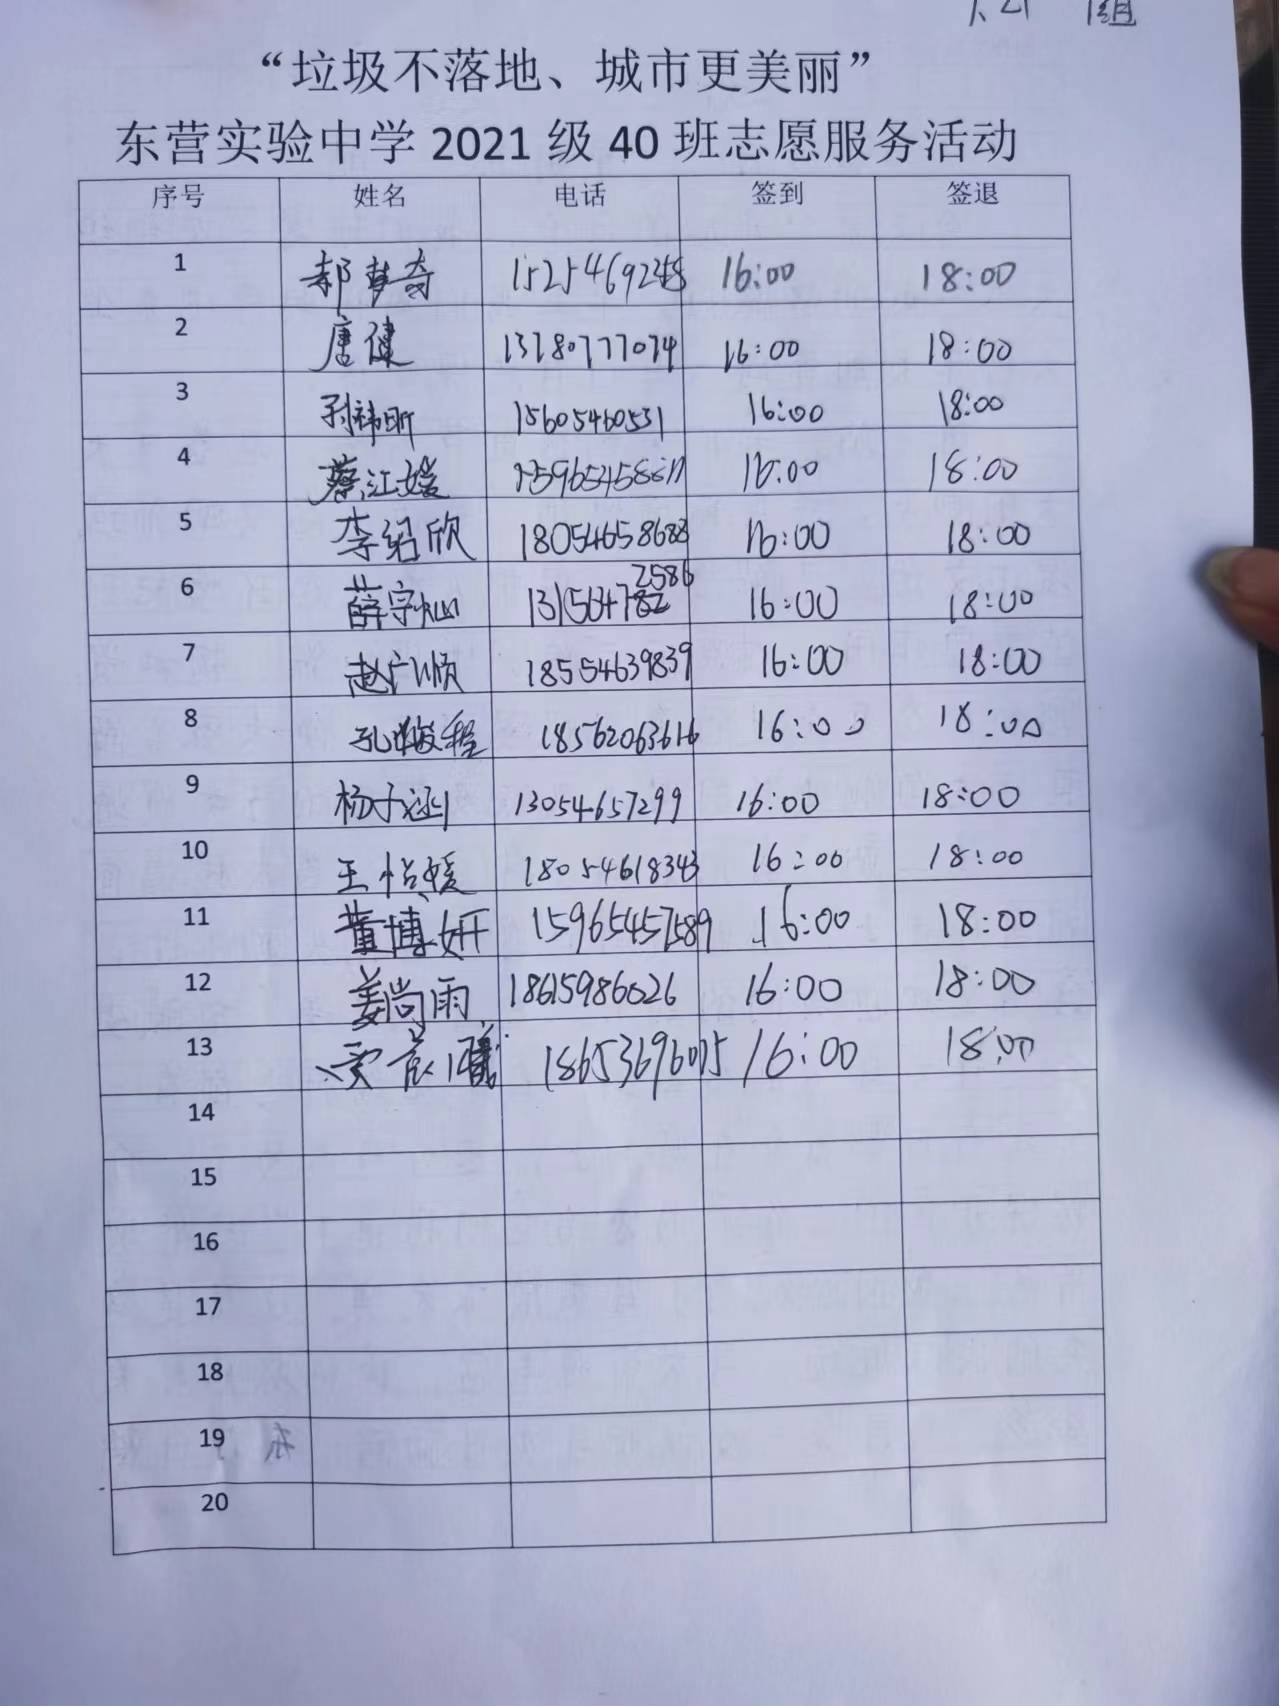 组
“垃圾不落地、城市更美丽”
东营实验中学 2021 级 40 班志愿服务活动
序号 姓名 电话 签到 签退
1 郝梦奇 15254692248 16:00 18:00
2 唐健 13780777074 16:00 18:00
3 孙祎昕 15605460531 16:00 18:00
4 蔡江媛 16:00 18:00
5 李绍欣 18054658688 16:00 18:00
6 薛宇灿 16:00 18:00
7 赵广顺 18554639839 16:00 18:00
8 18562063616 16:00 18:00
9 杨子涵 13054657299 16:00 18:00
10 王悦媛 18054618343 16:00 18:00
11 董博妍 15965457589 16:00 18:00
12 姜尚雨 18615986026 16:00 18:00
13 18653696015 16:00 18:00
14
15
16
17
18
19
20